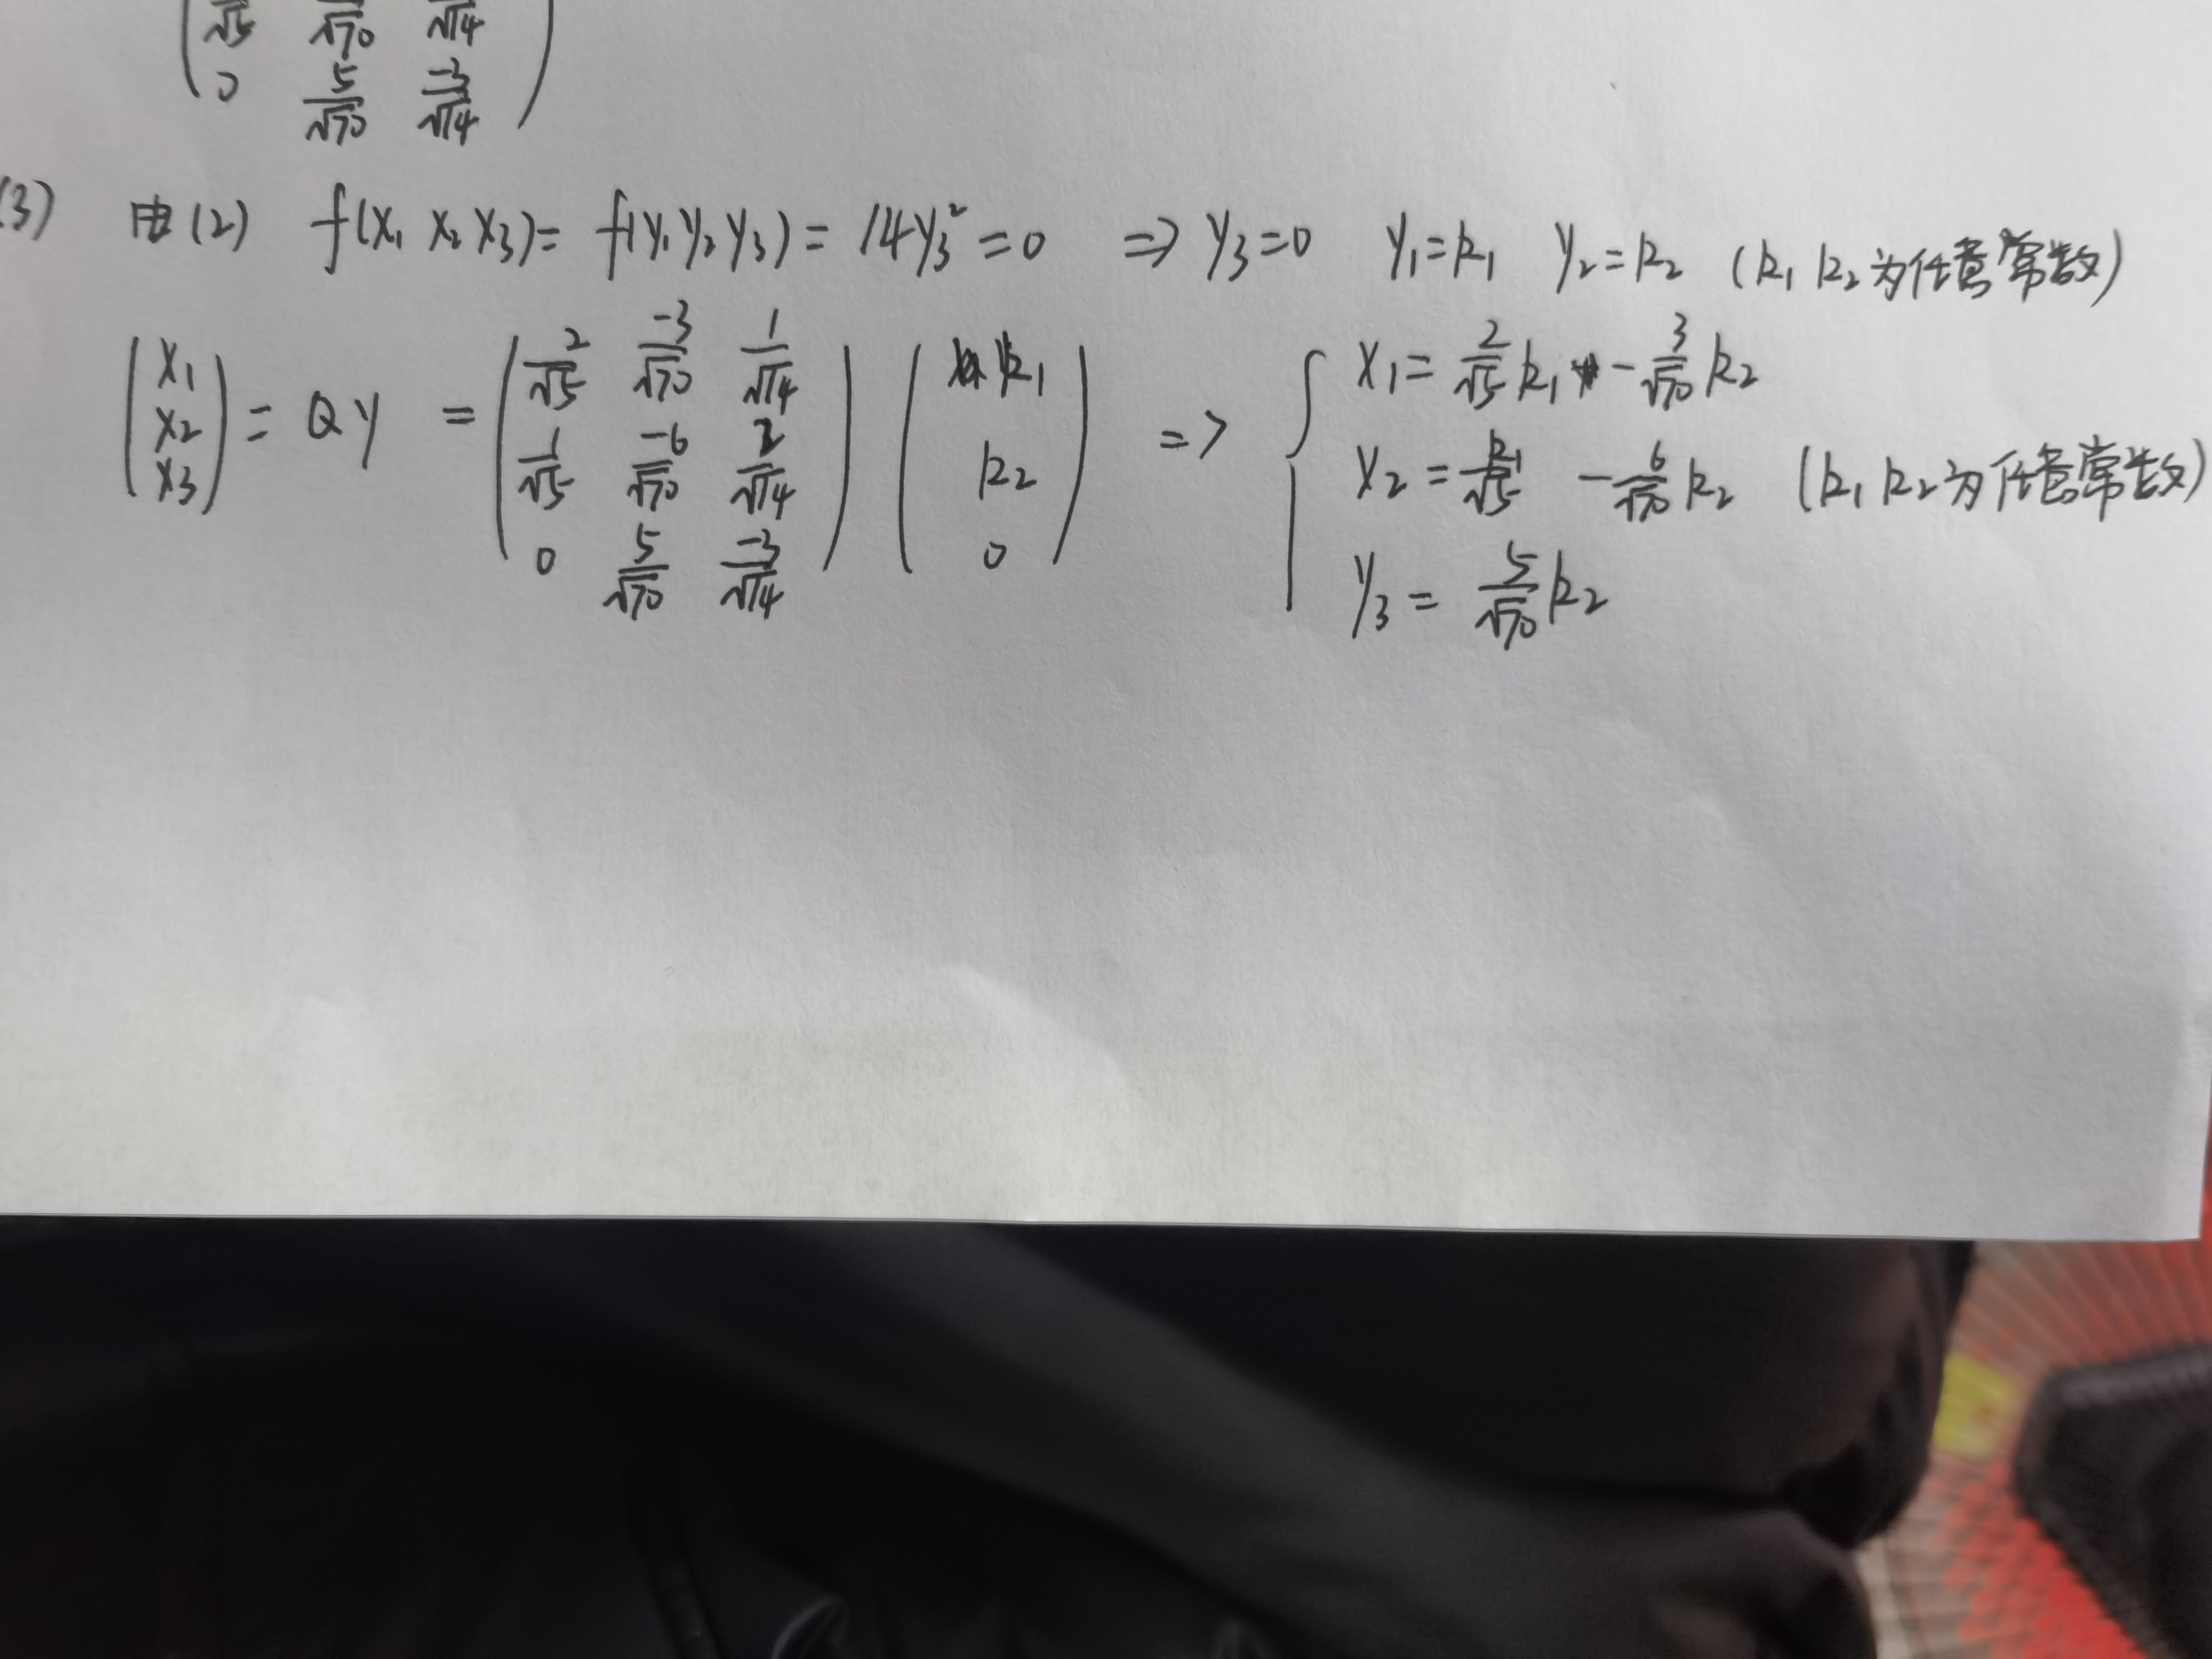 1/√5 -6/√70 2/√14
0 5/√70 -3/√14
(3) 由(2) f(x₁ x₂ x₃) = f(y₁ y₂ y₃) = 14y₃² = 0 => y₃=0 y₁=k₁ y₂=k₂ (k₁ k₂为任意常数)
(x₁ x₂ x₃) = QY = (2/√5 -3/√70 1/√14; 1/√5 -6/√70 2/√14; 0 5/√70 -3/√14) (k₁ k₂ 0) => { x₁ = 2/√5 k₁ - 3/√70 k₂
x₂ = k₁/√5 - 6/√70 k₂ (k₁ k₂为任意常数)
y₃ = 5/√70 k₂